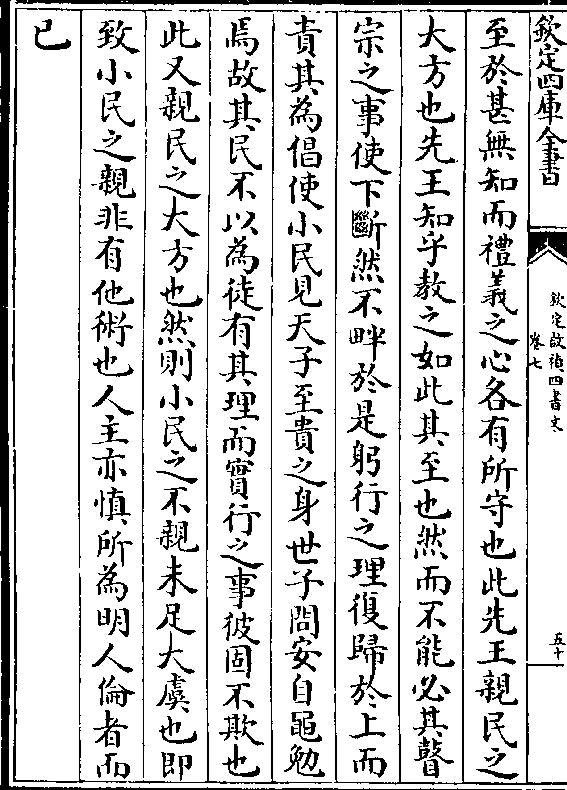 欽定四庫全書
欽定啟禎四書文
卷七
五十
至於甚無知而禮義之心各有所守也此先王親民之
大方也先王知乎教之如此其至也然而不能必其瞽
宗之事使下斷然不畔於是躬行之理復歸於上而
責其為倡使小民見天子至貴之身世子問安自黽勉
焉故其民不以為徒有其理而實行之事彼固不欺也
此又親民之大方也然則小民之不親未足大虞也即
致小民之親非有他術也人主亦慎所為明人倫者而
已